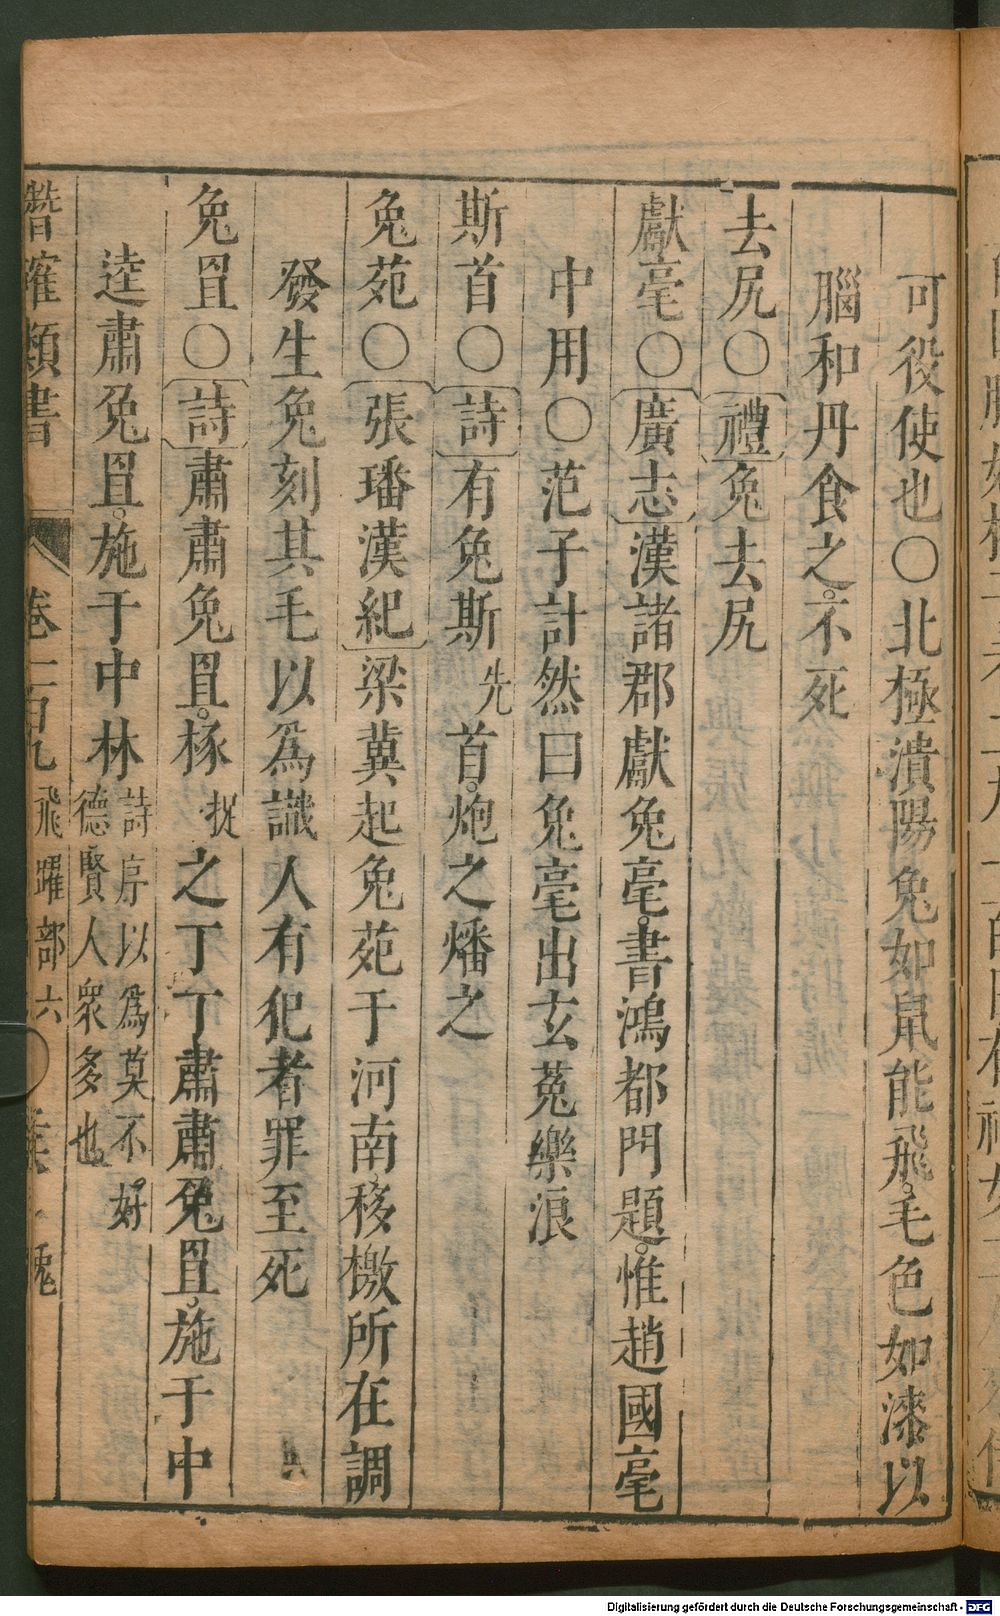 可役使也〇北極潰陽兔如鼠能飛。毛色如漆以
腦和丹食之。不死
去尻〇禮兔去尻
獻毫〇廣志漢諸郡獻兔毫。書鴻都門題。惟趙國毫
中用〇范子計然曰兔毫出玄菟樂浪
斯首〇詩有兔斯先首。炮之燔之
兔苑〇張璠漢紀梁冀起兔苑于河南移檄所在調
發生兔刻其毛以爲識人有犯者罪至死
兔罝〇詩肅肅兔罝。椓捉之丁丁肅肅兔罝。施于中
逵肅兔罝。施于中林詩序以爲莫不。好
德賢人衆多也
潛確類書 卷一百九 飛躍部六 兔
Digitalisierung gefördert durch die Deutsche Forschungsgemeinschaft - DFG